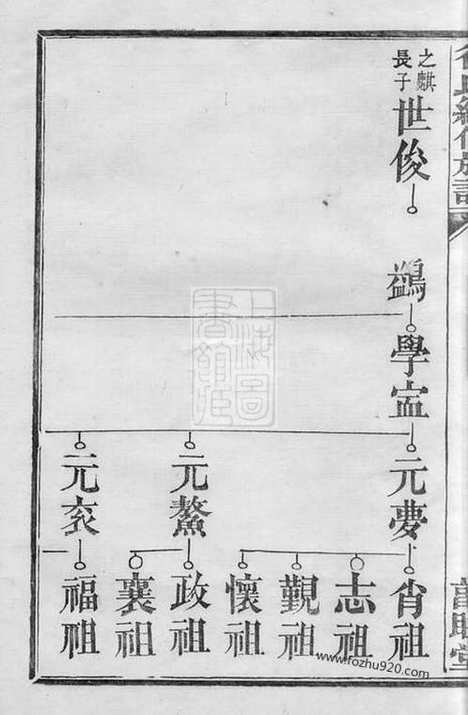 之麒
長子
世俊
鷁
學
元夢
肖祖
志祖
覲祖
懷祖
元鰲
政祖
襄祖
元
福祖
上海圖
書館藏
www.fozhu920.com